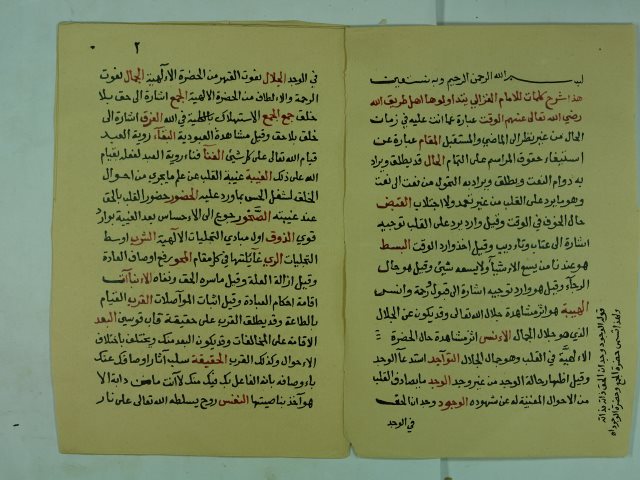 بسم الله الرحمن الرحيم وبه نستعين
هذا شرح كلمات للامام الغزالي يتداولوها اهل طريق الله
رضي الله تعالى عنهم الوقت عبارة عما انت عليه في زمان
الحال من غير نظر الى الماضي والمستقبل المقام عبارة عن
استيفاء حقوق المراسم على التمام الحال قد يطلق ويراد
به دوام النعت ويطلق ويراد به التحول من نعت الى نعت
وهو ما يرد على القلب من غير تعمد ولا اجتلاب القبض
حال الخوف في الوقت وقيل وارد يرد على القلب توجيه
اشارة الى عتاب وتاديب وقيل اخذ وارد الوقت البسط
هو عندنا من يسع الاشياء ولا يسعه شئ وقيل هو حال
الرجاء وقيل هو وارد توجيه اشارة الى قبول ورحمة وانس
الهيبة هو اثر مشاهدة جلال الله تعالى وقد يكون عن الجلال
الذي هو جلال الجمال الانس اثر مشاهدة جمال الحضرة
الالهية في القلب وهو جمال الجلال التواجد استدعاء الوجد
وقيل اظهار حالة الوجد من غير وجد الوجد ما يصادف القلب
من الاحوال المفنية له عن شهوده الوجود وجدان الحق
في الوجد
وقد تسمى حضرة الجمع وحضرة الوجود
قوله الوجود وجدان الحق ذاته بذاته
٢
في الوجد الجلال نعوت القهر من الحضرة الالهية الجمال نعوت
الرحمة والالطاف من الحضرة الالهية الجمع اشارة الى حق بلا
خلق جمع الجمع الاستهلاك بالكلية في الله الفرق اشارة الى
خلق بلا حق وقيل مشاهدة العبودية البقاء روية العبد
قيام الله تعالى على كل شئ الفنا فناء روية العبد لفعله بقيام
الله على ذلك الغيبة غيبة القلب عن علم ما يجري من احوال
الخلق لشغل الحس بما ورد عليه الحضور حضور القلب بالحق
عند غيبته الصحو رجوع الى الاحساس بعد الغيبة بوارد
قوي الذوق اول مبادي التجليات الالهية الشرب اوسط
التجليات الري غاياتها في كل مقام المحو رفع اوصاف العادة
وقيل ازالة العلة وقيل ما ستره الحق ونفاه الاثبات
اقامة احكام العبادة وقيل اثبات المواصلات القرب القيام
بالطاعة وقد يطلق القرب على حقيقة قاب قوسين البعد
الاقامة على المخالفات وقد يكون البعد منك ويختلف باختلاف
الاحوال وكذلك القرب الحقيقة سلب آثار اوصافك عنك
باوصافه بانه الفاعل بك فيك منك لا انت ما من دابة الا
هو آخذ بناصيتها النفس روح يسلطه الله تعالى على نار